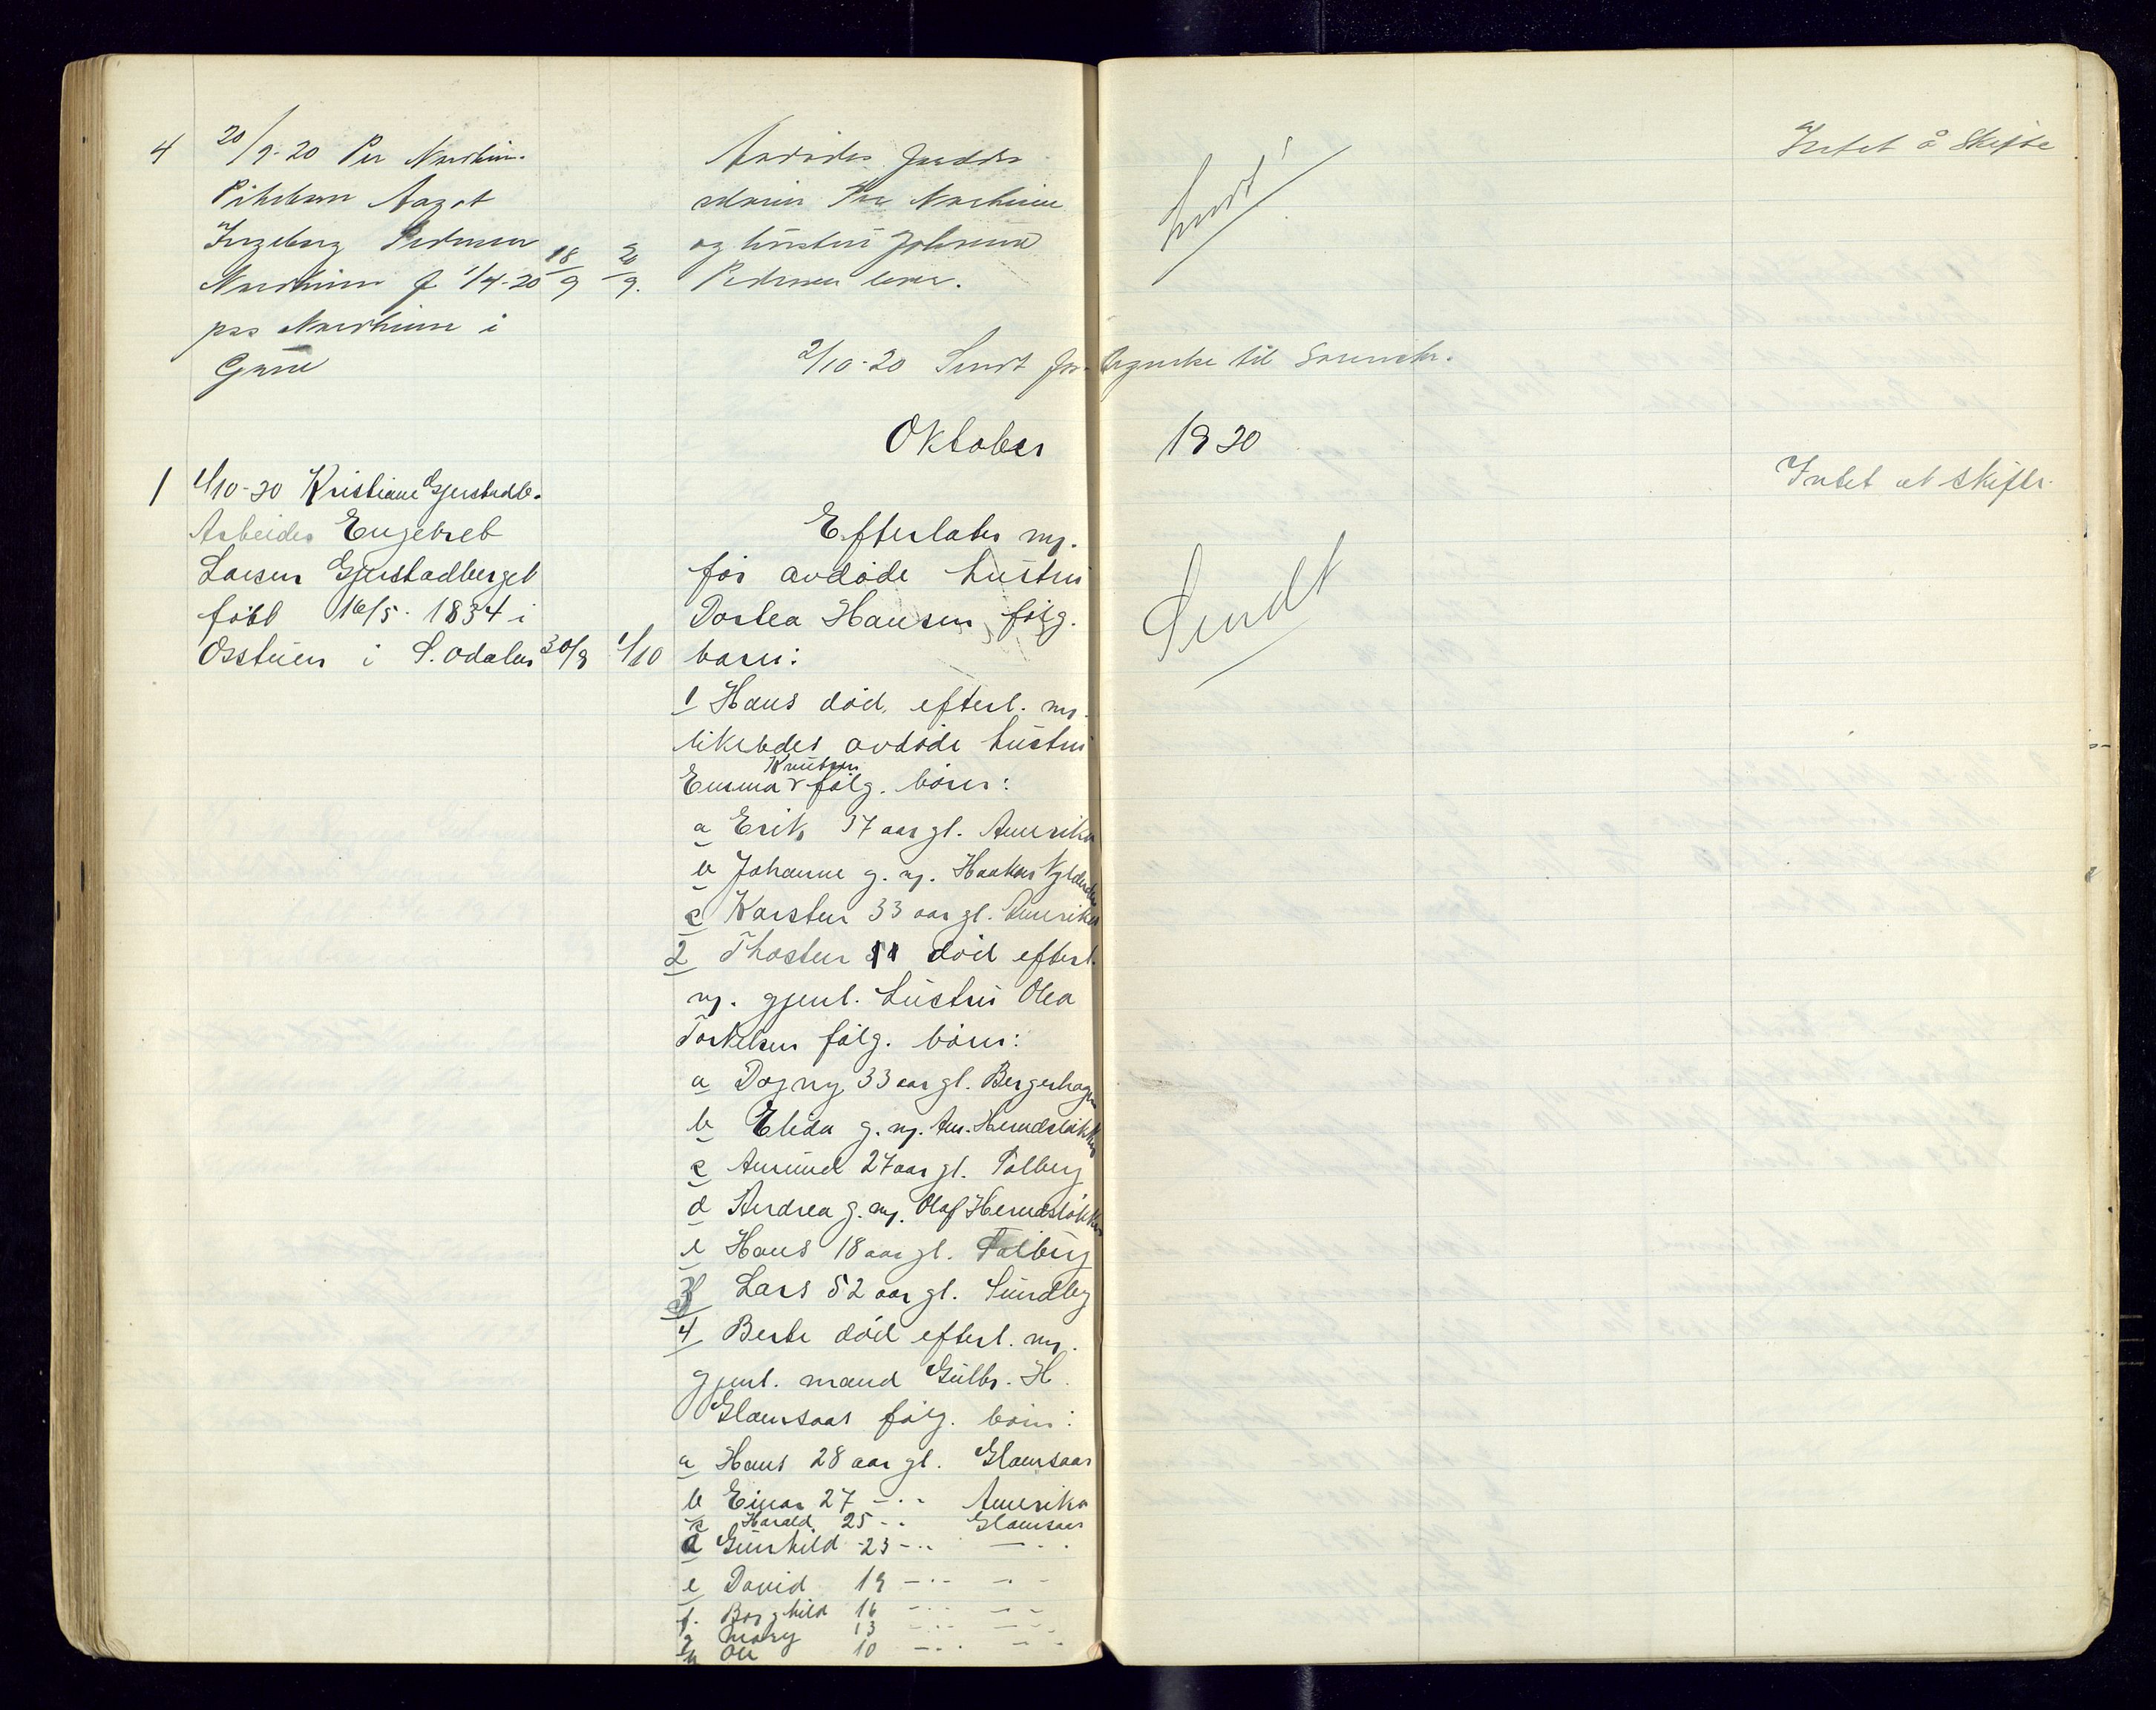 4 20/9-20 Per Nordhim.
Pikebarn Aagot
Ingeborg Pedersen
Nordhim f 1/4-20 18/9 20/9.
pss Nordhim i
Grue
Avdødes foreldre
Per Nordhim
og hustru Johanne
Pedersen lever.
sendt
Intet å Skifte
2/10-20 Sendt fortegnelse til Sorenskr.
Oktober 1920
1 1/10-20 Kristiane Gjerstadb.
Arbeider Engebret
Larsen Gjerstadberget
født 16/5. 1834 i
Osstuen i S. odalen 30/9 1/10
Efterlater m.
før avdøde hustru
Dortea Hansen følg.
barn:
Sendt
Intet at skifte.
1 Hans død, efterl. m.
likeledes avdøde hustru
Knutsen
Emma følg. børn:
a Erik 37 aar gl. Amerika
b Johanne g. m. Haaken
c Karsten 33 aar gl. Amerika
2 Thosten død efterl.
m. gjenl. hustru Olea
Torkelsen følg. børn:
a Dagny 33 aar gl. Bergerhagen
b Elida g. m. Am. Hemdsløkken
c Amund 27 aar gl. Solberg
d Andrea g. m. Olaf Hemdsløkken
e Hans 18 aar gl. Solberg
3 Lars 52 aar gl. Sundby
4 Berte død efterl. m.
gjenl. mand Gulbr. H.
Glomsaas følg. børn:
a Hans 28 aar gl. Glomsaas
b Einar 27 -"- Amerika
c Harald 25 -"- Glomsaas
d Gunhild 23 -"- -"-
e David 19 -"- -"-
f. Borghild 16 -"- -"-
g Mary 13 -"- -"-
h Ole 10 -"- -"-